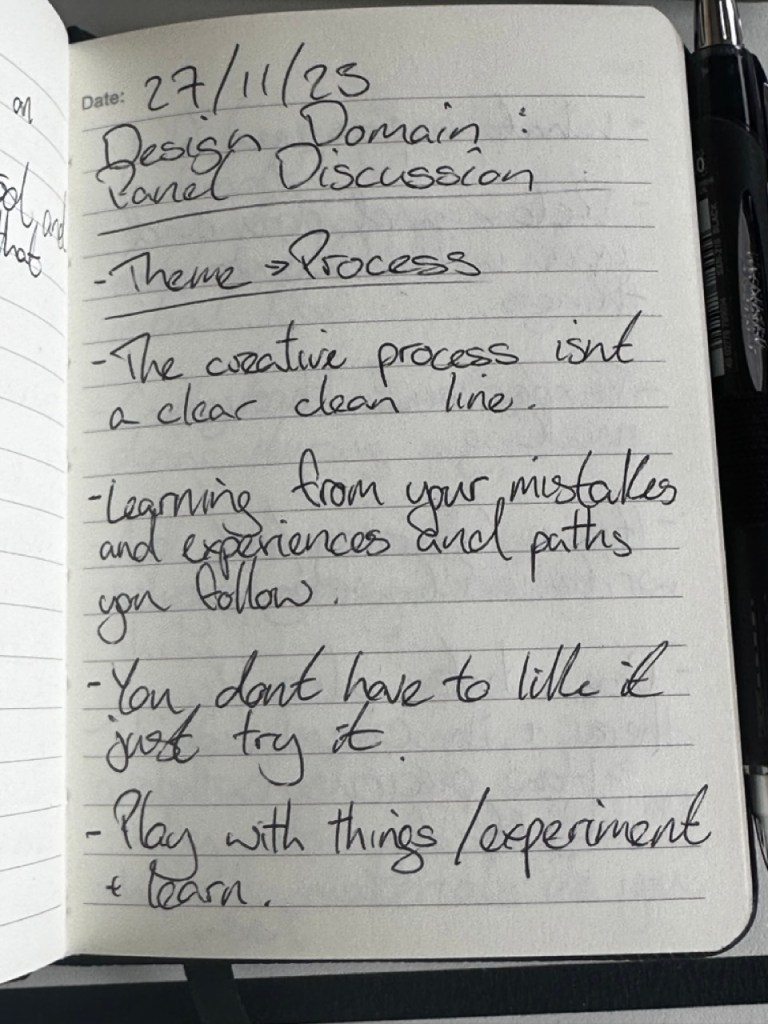 on
and
that
Date: 27/11/25
Design Domain :
Panel Discussion
- Theme → Process
- The creative process isnt
a clear clean line.
- Learning from your mistakes
and experiences and paths
you follow.
- You dont have to like it
just try it.
- Play with things / experiment
+ learn.